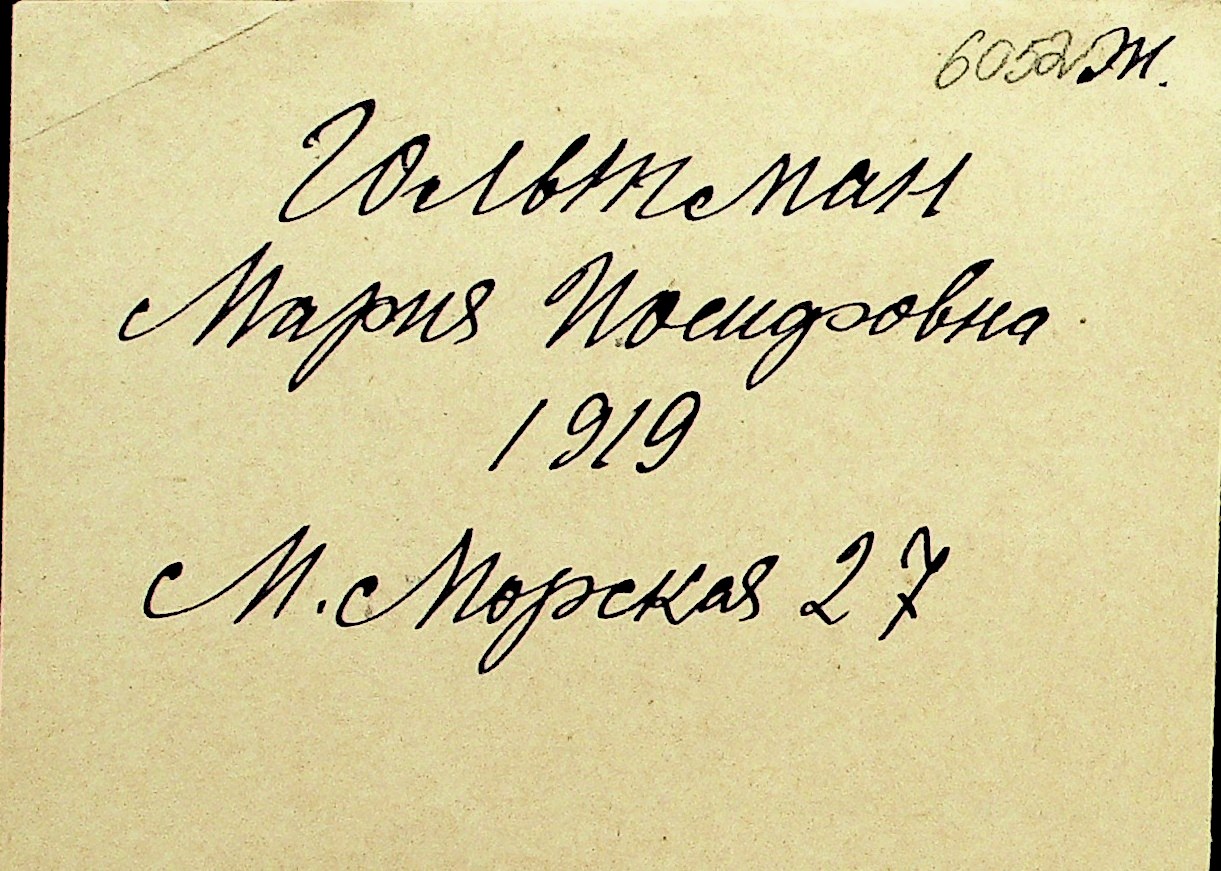 6052 Ж.
Гольтман
Мария Иосифовна
1919
М. Морская 27